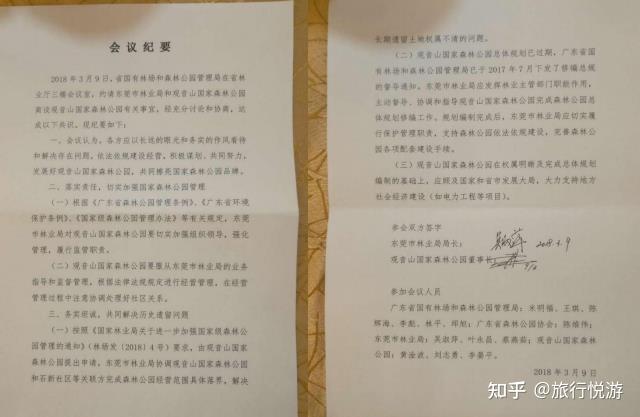 会议纪要
2018年3月9日,省国有林场和森林公园管理局在省林
业厅三楼会议室,约请东莞市林业局和观音山国家森林公园
商谈观音山国家森林公园有关事宜,经充分讨论和协商,达
成以下共识,现纪要如下:
一、会议认为,各方应以长远的眼光和务实的作风看待
和解决存在问题,依法依规建设经营,积极谋划、共同努力,
发展好观音山国家森林公园,共同擦亮国家森林公园品牌。
二、落实责任,切实加强国家森林公园管理
(一)根据《广东省森林公园管理条例》、《广东省环境
保护条例》、《国家级森林公园管理办法》等有关规定,东莞
市林业局对观音山国家森林公园要切实加强组织领导,强化
管理,履行监管职责。
(二)观音山国家森林公园要服从东莞市林业局的业务
指导和监督管理,根据法律法规规定进行经营管理,在经营
管理过程中注意协调处理好社区关系。
三、务实坦诚,共同解决历史遗留问题
(一)按照《国家林业局关于进一步加强国家级森林公
园管理的通知》(林场发〔2018〕4号)要求,由观音山国家
森林公园提出申请,东莞市林业局协调观音山国家森林公园
和石新社区等关联方完成森林公园经营范围具体落界,解决
长期遗留土地权属不清的问题。
(二)观音山国家森林公园总体规划已过期,广东省国
有林场和森林公园管理局已于2017年7月下发了修编总规
的督导通知。东莞市林业局应发挥林业主管部门职能作用,
主动督导、协调和指导观音山国家森林公园完成森林公园总
体规划修编工作。规划编制完成后,东莞市林业局应切实履
行保护管理职责,支持森林公园依法依规建设,完善森林公
园各项配套建设手续。
(三)观音山国家森林公园在权属明晰及完成总体规划
编制的基础上,应顾及国家和省市发展大局,大力支持地方
社会经济建设(如电力工程等项目)。
参会双方签字
东莞市林业局局长: 2018.3.9
观音山国家森林公园董事长:
参加会议人员
广东省国有林场和森林公园管理局:米明福、王琪、陈
辉海、李彪、林平、邓旭;广东省森林公园协会:陈维伟;
东莞市林业局:吴淑萍、叶永昌、蔡燕茹;观音山国家森林公
园:黄淦波、刘志勇、李晏平。
2018年3月9日
知乎 @旅行悦游